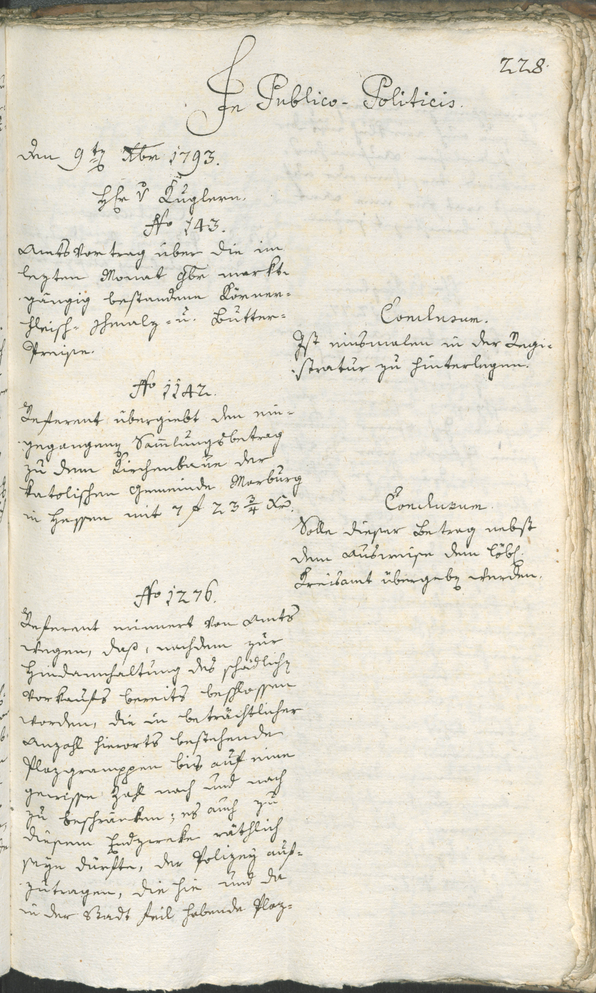 228.
In Publico-Politicis.
Den 9ten Xbr 1793.
Hr v Kuglern.
No 143.
Amtsvortrag über die im
lezten Monat 9br markt-
gängig bestandene Körner-
fleisch- schmalz- u. Butter-
Preise.
Conclusum.
Ist einsmalen in der Regi-
stratur zu hinterlegen.
No 1142.
Referent übergiebt den ein-
gegangenen Samlungsbetrag
zu dem Kirchenbaue der
katolischen Gemeinde Marburg
in Hessen mit 7 f 23 3/4 Xr.
Conclusum.
Solle dieser Betrag nebst
dem Ausweise dem löbl.
Kreisamt übergeben werden.
No 1276.
Referent erinnert von Amts
wegen, daß, nachdem zur
Hindanhaltung des schädlichen
Vorkaufs bereits beschlossen
worden, die in beträchtlicher
Anzahl hierorts bestehende
Plazgramppen bis auf eine
gewisse Zahl nach und nach
zu beschränken; es auch zu
diesem Endzwecke räthlich
seyn dürfte, der Polizey auf-
zutragen, die hie und da
in der Stadt feil habende Plaz-